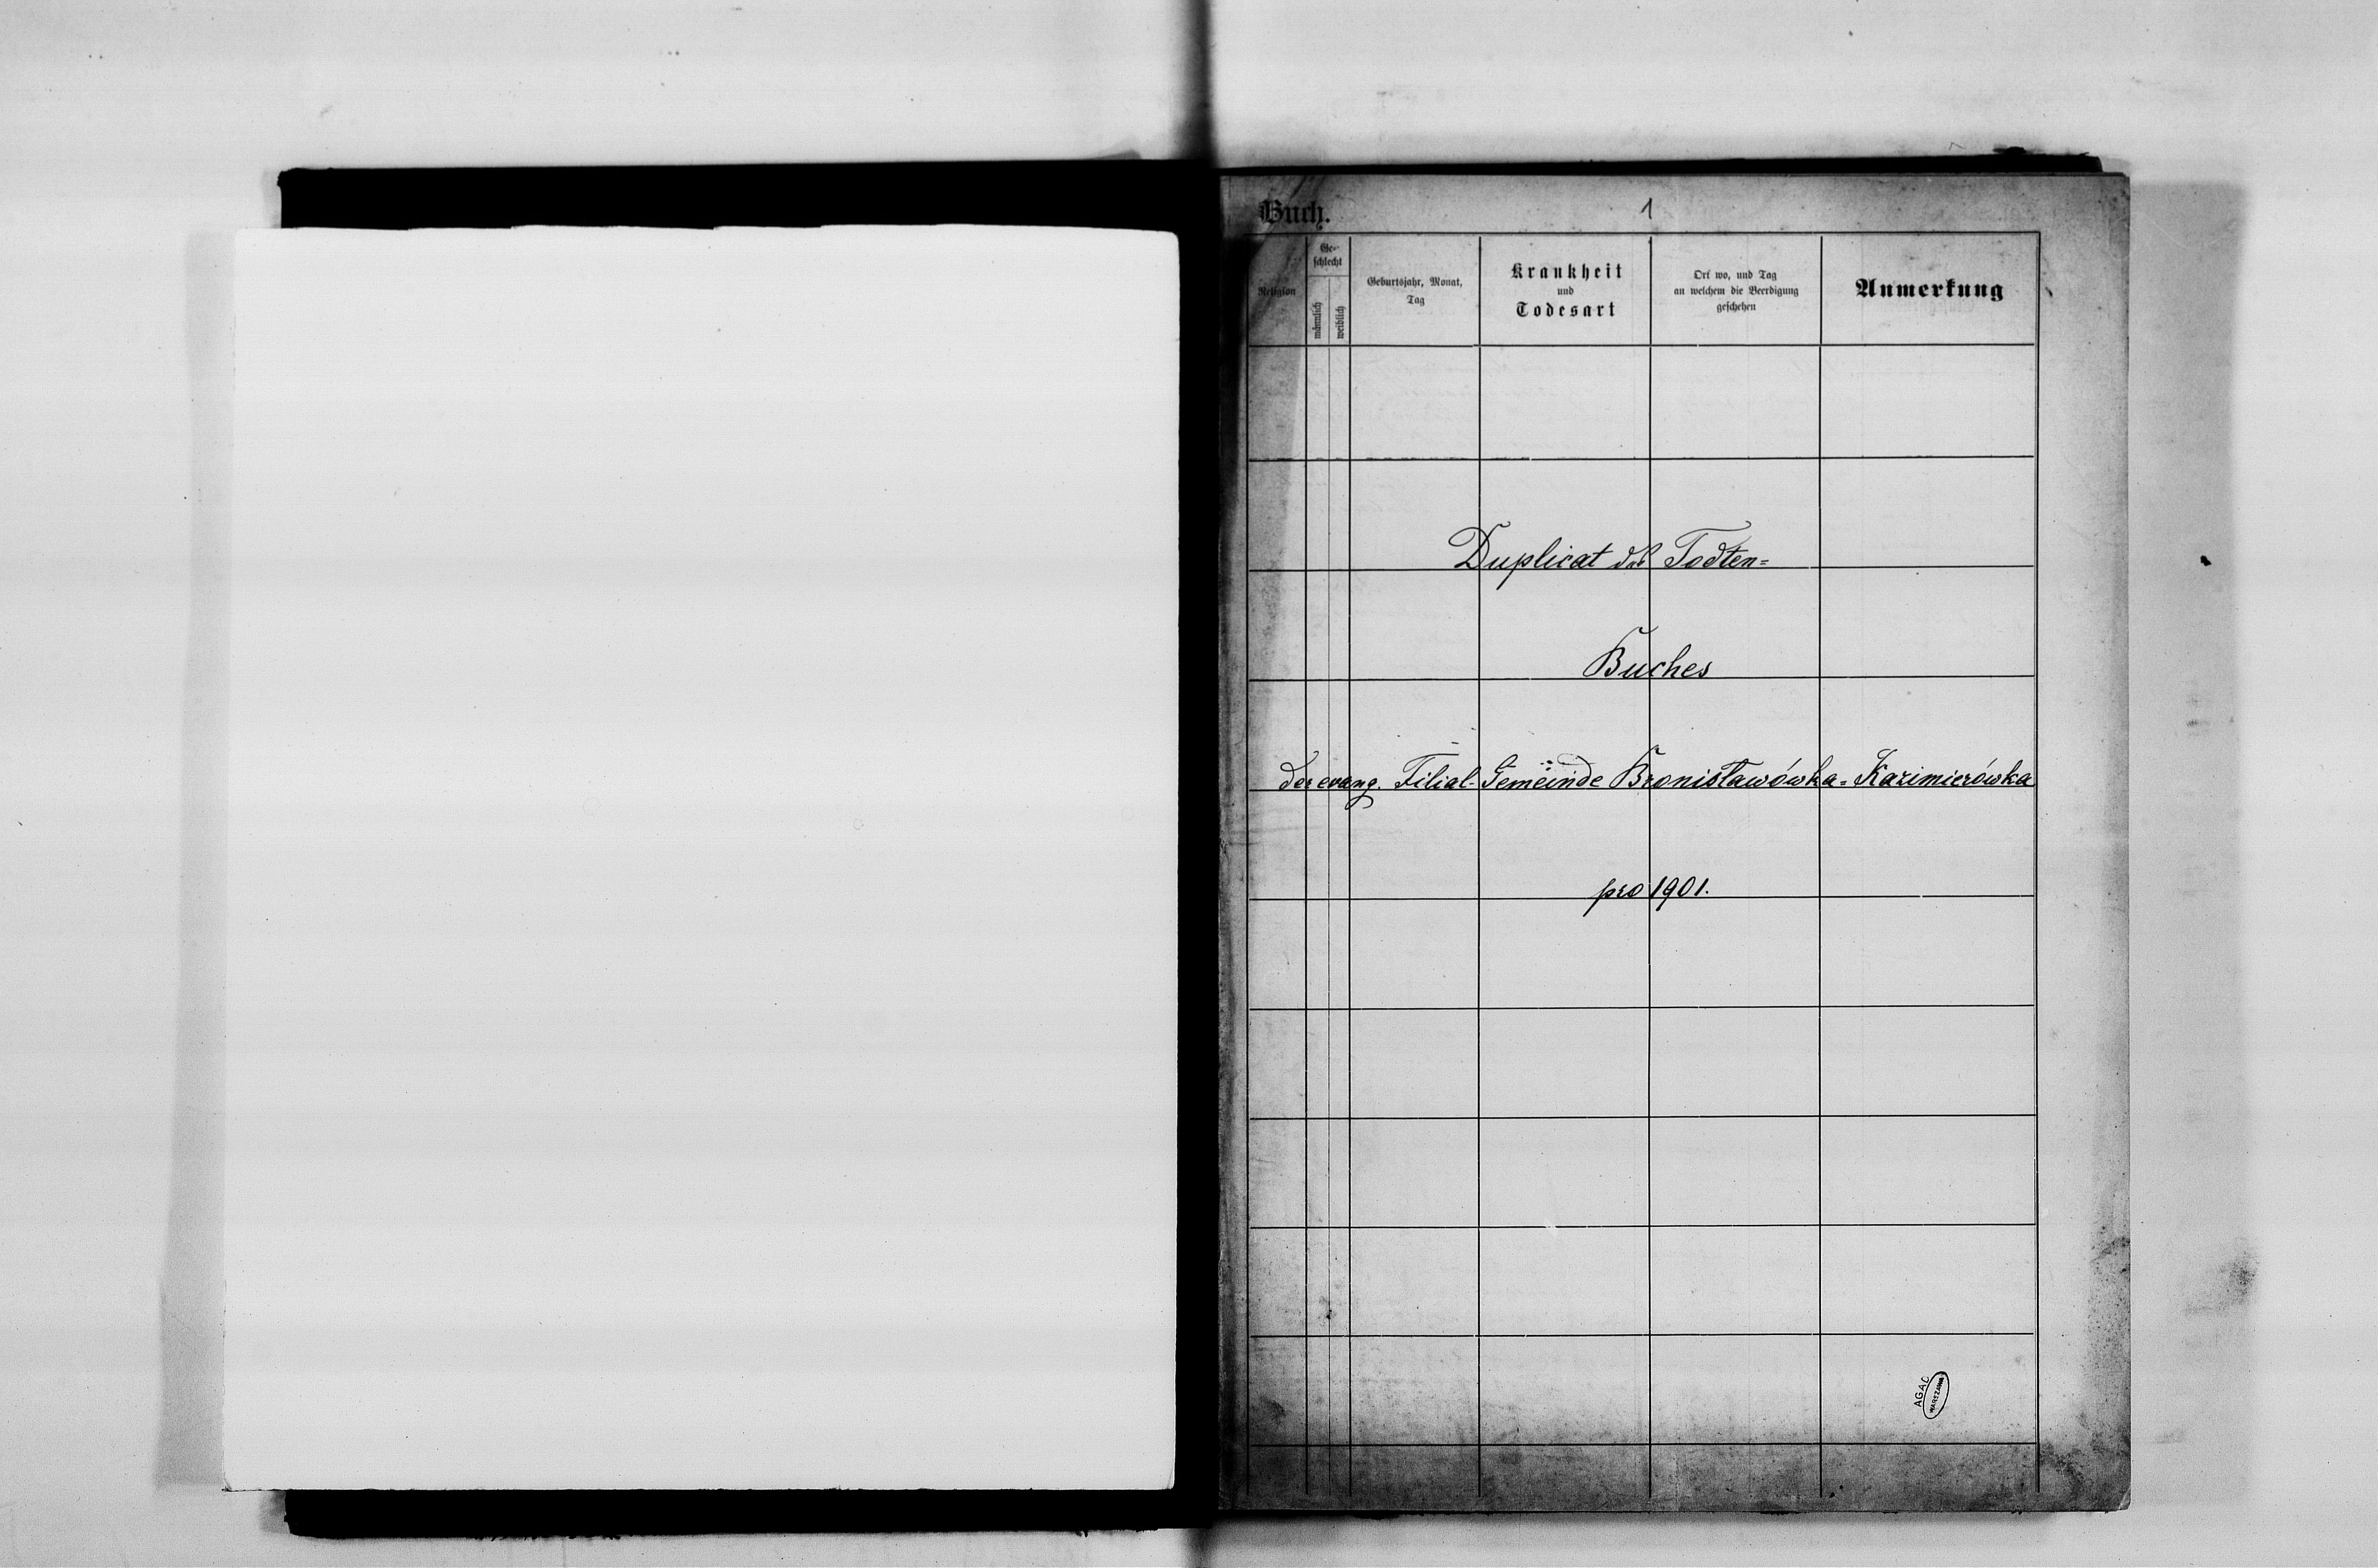 Buch.
1
Religion
Ge-
schlecht
männlich
weiblich
Geburtsjahr, Monat,
Tag
Krankheit
und
Todesart
Ort wo, und Tag
an welchem die Beerdigung
geschehen
Anmerkung
Duplicat des Todten=
Buches
der evang. Filial-Gemeinde Bronisławówka=Kazimierówka
pro 1901.
AGAD
WARSZAWA